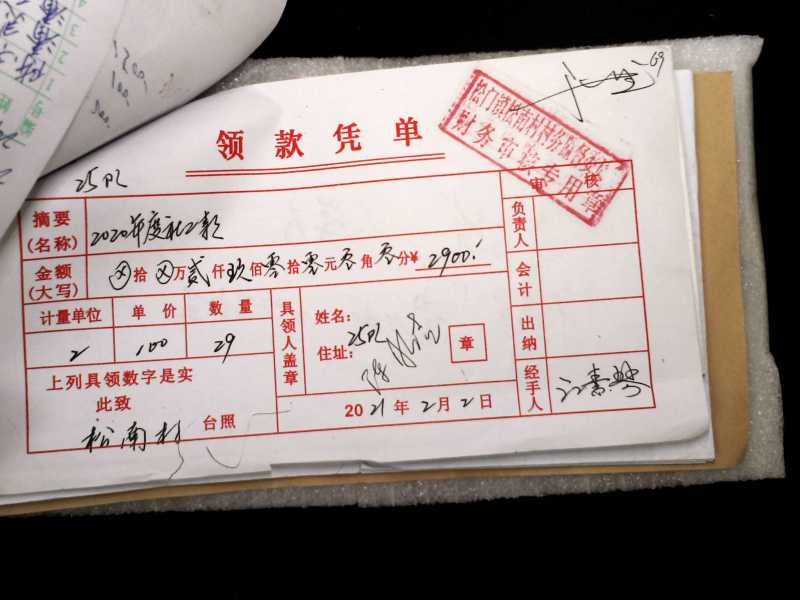 69
领款凭单
松门镇松南村村务监督委员会
财务审核专用章
25队
审核
摘要(名称)
2020年度社工款
负责人
金额(大写)
⊗拾⊗万贰仟玖佰零拾零元零角零分¥2900.
会计
计量单位 单价 数量
具领人盖章
姓名:
出纳
2 100 29
住址:25队
章
上列具领数字是实
经手人
此致
2021年2月2日
松南村 台照